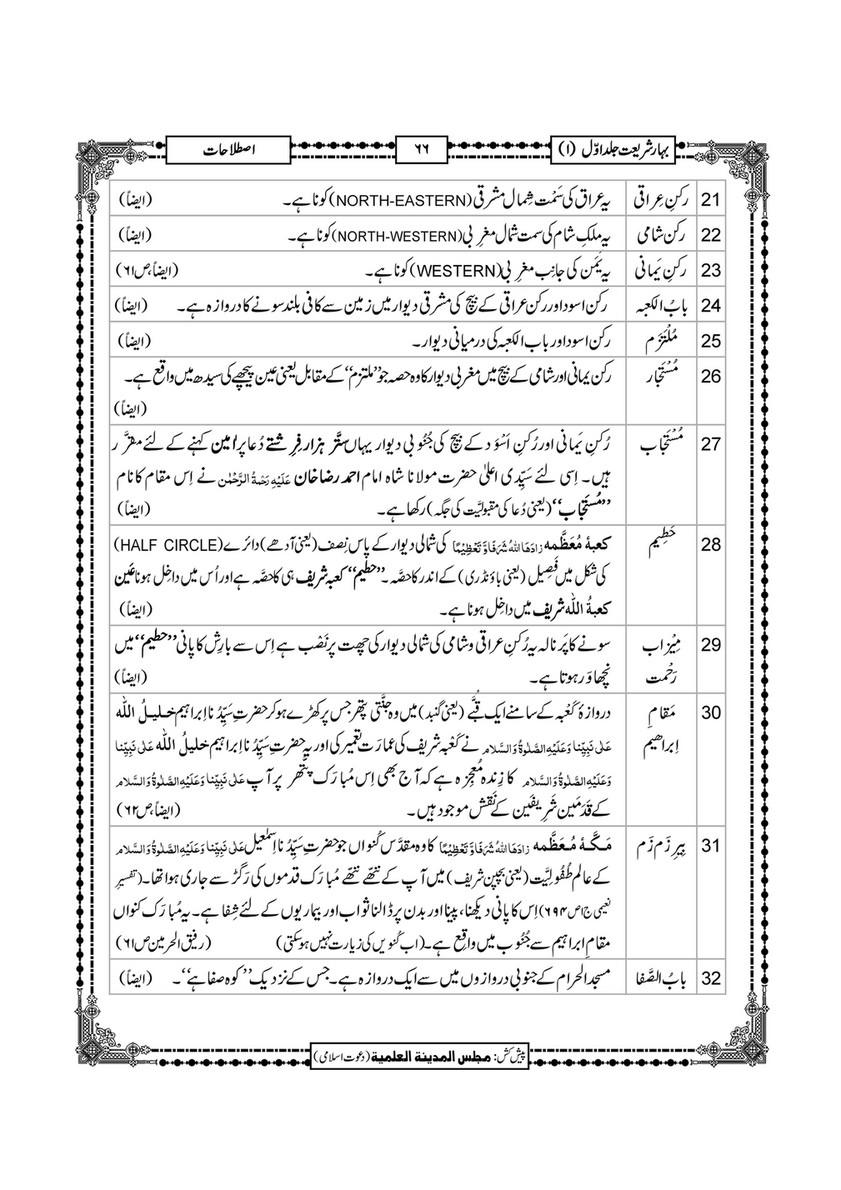 بہارِ شریعت جلد اوّل (1)
۶۶
اصطلاحات
21 رکنِ عِراقی یہ عراق کی سَمْت شِمال مشرقی (NORTH-EASTERN) کونا ہے۔ (ایضاً)
22 رکن شامی یہ ملکِ شام کی سمت شمال مغربی (NORTH-WESTERN) کونا ہے۔ (ایضاً)
23 رکنِ یَمانی یہ یَمَن کی جانِب مغرِبی (WESTERN) کونا ہے۔ (ایضاً، ص۶۱)
24 بابُ الکعبہ رکن اسود اور رکن عراقی کے بیچ کی مشرقی دیوار میں زمین سے کافی بلند سونے کا دروازہ ہے۔ (ایضاً)
25 مُلْتَزَم رکن اسود اور باب الکعبہ کی درمیانی دیوار۔ (ایضاً)
26 مُسْتَجار رکن یمانی اور شامی کے بیچ میں مغربی دیوار کا وہ حصہ جو ’’ملتزم‘‘ کے مقابل یعنی عین پیچھے کی سیدھ میں واقع ہے۔
(ایضاً)
27 مُسْتَجاب رُکنِ یَمانی اور رُکنِ اَسْوَد کے بیچ کی جُنُوبی دیوار یہاں ستَّر ہزار فِرِشتے دُعا پر امین کہنے کے لئے مقرَّر
ہیں۔ اِسی لئے سَیِّدی اعلیٰ حضرت مولانا شاہ امام احمد رضا خان عَلَیْہِ رَحْمَۃُ الرَّحْمٰن نے اِس مقام کا نام
’’مُسْتَجاب‘‘ (یعنی دُعا کی مقبولیَّت کی جگہ) رکھا ہے۔ (ایضاً)
28 حَطِیم کعبۂ مُعَظَّمہ زَادَھَا اللہُ شَرَفًا وَّتَعْظِیْمًا کی شمالی دیوار کے پاس نِصف (یعنی آدھے) دائرے (HALF CIRCLE)
کی شکل میں فَصِیل (یعنی باؤنڈری) کے اندر کا حصّہ۔ ’’حطیم‘‘ کعبہ شریف ہی کا حصّہ ہے اور اُس میں داخل ہونا عَین
کعبۃُ اللّٰہ شریف میں داخِل ہونا ہے۔ (ایضاً)
29 مِیْزاب سونے کا پَرنالہ یہ رُکنِ عراقی و شامی کی شمالی دیوار کی چھت پر نَصْب ہے اِس سے بارِش کا پانی ’’حطیم‘‘ میں
رَحْمت نچھاوَر ہوتا ہے۔ (ایضاً)
30 مَقامِ دروازۂ کَعْبہ کے سامنے ایک قُبّے (یعنی گنبد) میں وہ جنّتی پتھر جس پر کھڑے ہو کر حضرتِ سَیِّدُنا ابراہیم خلیلُ اللّٰہ
اِبراھیم عَلٰی نَبِیِّنَا وَعَلَیْہِ الصَّلٰوۃُ وَالسَّلام نے کَعْبہ شریف کی عمارت تعمیر کی اور یہ حضرتِ سَیِّدُنا ابراہیم خلیلُ اللّٰہ عَلٰی نَبِیِّنَا
وَعَلَیْہِ الصَّلٰوۃُ وَالسَّلام کا زِندہ مُعْجِزہ ہے کہ آج بھی اِس مُبارَک پتھَّر پر آپ عَلٰی نَبِیِّنَا وَعَلَیْہِ الصَّلٰوۃُ وَالسَّلام
کے قَدَمَین شَرِیفَین کے نَقش موجود ہیں۔ (ایضاً، ص۶۲)
31 بِیرِ زَم زَم مَکَّۂ مُعَظَّمہ زَادَھَا اللہُ شَرَفًا وَّتَعْظِیْمًا کا وہ مقدَّس کُنواں جو حضرتِ سَیِّدُنا اِسْمٰعیل عَلٰی نَبِیِّنَا وَعَلَیْہِ الصَّلٰوۃُ وَالسَّلام
کے عالَمِ طُفُولِیَّت (یعنی بچپن شریف) میں آپ کے ننّھے ننّھے مُبارَک قدموں کی رَگڑ سے جاری ہوا تھا۔ (تفسیر
نعیمی ج۱ص ۶۹۴) اِس کا پانی دیکھنا، پینا اور بدن پر ڈالنا ثواب اور بیماریوں کے لئے شِفا ہے۔ یہ مُبارَک کنواں
مقامِ ابراہیم سے جُنُوب میں واقِع ہے۔ (اب کُنویں کی زیارت نہیں ہو سکتی) (رفیق الحرمین ص۶۱)
32 بابُ الصَّفا مسجد الحرام کے جنوبی دروازوں میں سے ایک دروازہ ہے۔ جس کے نزدیک ’’کوہِ صفا ہے‘‘۔ (ایضاً)
پیش کش: مجلس المدینۃ العلمیۃ (دعوت اسلامی)